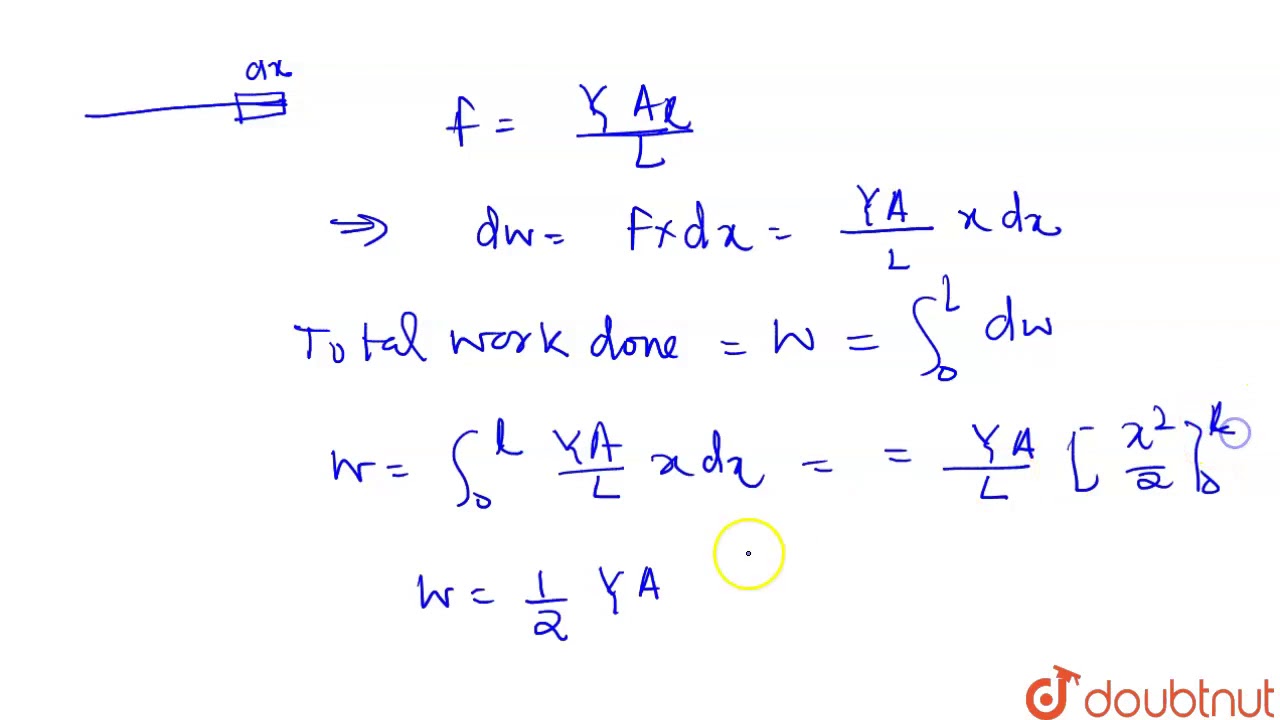 dx
F = YAx / L
⇒ dw = F × dx = YA / L x dx
Total work done = W = ∫₀ˡ dw
W = ∫₀ˡ YA / L x dx = = YA / L [x² / 2]₀ˡ
W = 1/2 YA
doubtnut